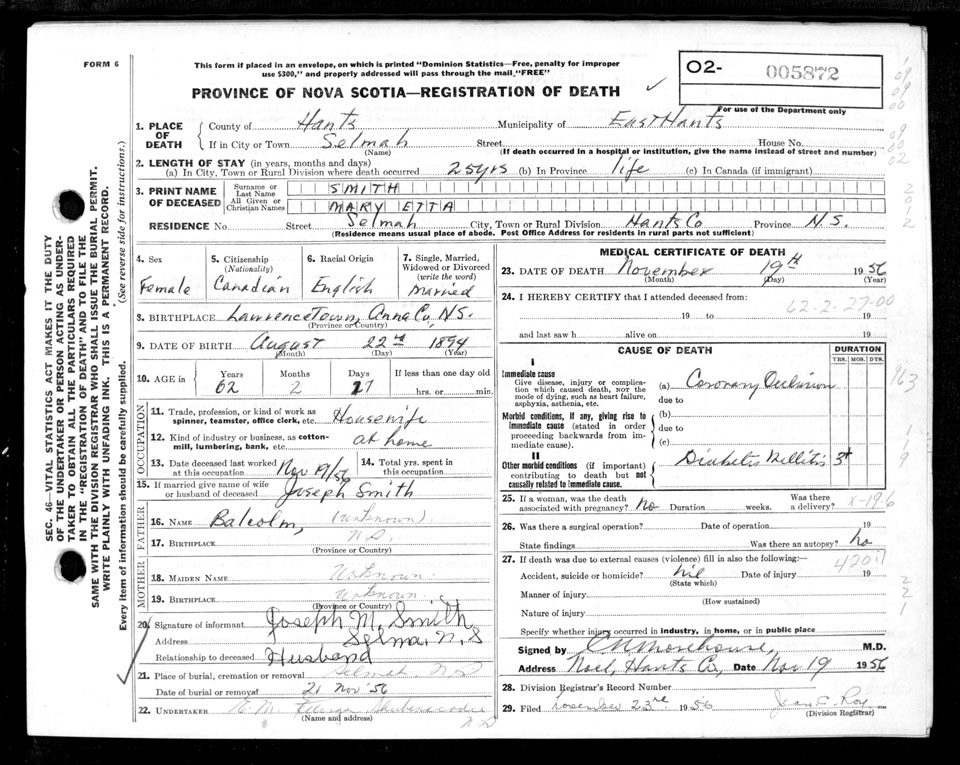 FORM 6
This form if placed in an envelope, on which is printed "Dominion Statistics—Free, penalty for improper
use $300," and properly addressed will pass through the mail "FREE"
PROVINCE OF NOVA SCOTIA—REGISTRATION OF DEATH
O2- 005872
For use of the Department only
1. PLACE OF DEATH County of Hants Municipality of East Hants
If in City or Town Selmah Street House No.
(Name) (If death occurred in a hospital or institution, give the name instead of street and number)
2. LENGTH OF STAY (in years, months and days)
(a) In City, Town or Rural Division where death occurred 25yrs (b) In Province life (c) In Canada (if immigrant)
3. PRINT NAME OF DECEASED Surname or Last Name SMITH
All Given or Christian Names MARY ETTA
RESIDENCE No Street Selmah City, Town or Rural Division Hants Co Province N.S.
(Residence means usual place of abode. Post Office Address for residents in rural parts not sufficient)
4. Sex Female
5. Citizenship (Nationality) Canadian
6. Racial Origin English
7. Single, Married, Widowed or Divorced (write the word) Married
8. BIRTHPLACE Lawrencetown, Anna Co, N.S.
(Province or Country)
9. DATE OF BIRTH August 22nd 1894
(Month) (Day) (Year)
10. AGE in Years 62 Months 2 Days 27 If less than one day old hrs. or min.
OCCUPATION
11. Trade, profession, or kind of work as spinner, teamster, office clerk, etc. Housewife
12. Kind of industry or business, as cotton-mill, lumbering, bank, etc. at home
13. Date deceased last worked at this occupation Nov 19/56
14. Total yrs. spent in this occupation
15. If married give name of wife or husband of deceased Joseph Smith
FATHER
16. NAME Balcolm, (unknown)
17. BIRTHPLACE N.S.
(Province or Country)
MOTHER
18. MAIDEN NAME Unknown
19. BIRTHPLACE Unknown
(Province or Country)
20. Signature of informant Joseph M. Smith
Address Selma, N.S
Relationship to deceased Husband
21. Place of burial, cremation or removal Selmah N.S
Date of burial or removal 21 Nov '56
22. UNDERTAKER E.M. Shubenacadie
(Name and address) N.S
MEDICAL CERTIFICATE OF DEATH
23. DATE OF DEATH November 19th 1956
(Month) (Day) (Year)
24. I HEREBY CERTIFY that I attended deceased from:
62-2-27-00
19 to 19
and last saw h alive on 19
CAUSE OF DEATH
DURATION
YRS. MOS. DYS.
I
Immediate cause
Give disease, injury or complication which caused death, NOT the mode of dying, such as heart failure, asphyxia, asthenia, etc.
(a) Coronary Occlusion
due to
Morbid conditions, if any, giving rise to immediate cause (stated in order proceeding backwards from immediate cause).
(b)
due to
(c)
II
Other morbid conditions (if important) contributing to death but not causally related to immediate cause.
Diabetis Mellitis 3+
25. If a woman, was the death associated with pregnancy? No Duration weeks. Was there a delivery? X-19-6
26. Was there a surgical operation? Date of operation 19
State findings Was there an autopsy? no
27. If death was due to external causes (violence) fill in also the following:—
Accident, suicide or homicide? nil Date of injury 19
(State which)
Manner of injury
(How sustained)
Nature of injury
Specify whether injury occurred in industry, in home, or in public place
Signed by Morehouse, M.D.
Address Noel, Hants Co, Date Nov 19 1956
28. Division Registrar's Record Number
29. Filed November 23rd 1956 Jean C. Roy
(Division Registrar)
SEC. 46—VITAL STATISTICS ACT MAKES IT THE DUTY
OF THE UNDERTAKER OR PERSON ACTING AS UNDER-
TAKER TO OBTAIN ALL THE PARTICULARS REQUIRED
IN THE "REGISTRATION OF DEATH" AND TO FILE THE
SAME WITH THE DIVISION REGISTRAR WHO SHALL ISSUE THE BURIAL PERMIT.
WRITE PLAINLY WITH UNFADING INK. THIS IS A PERMANENT RECORD.
Every item of information should be carefully supplied. (See reverse side for instructions.)